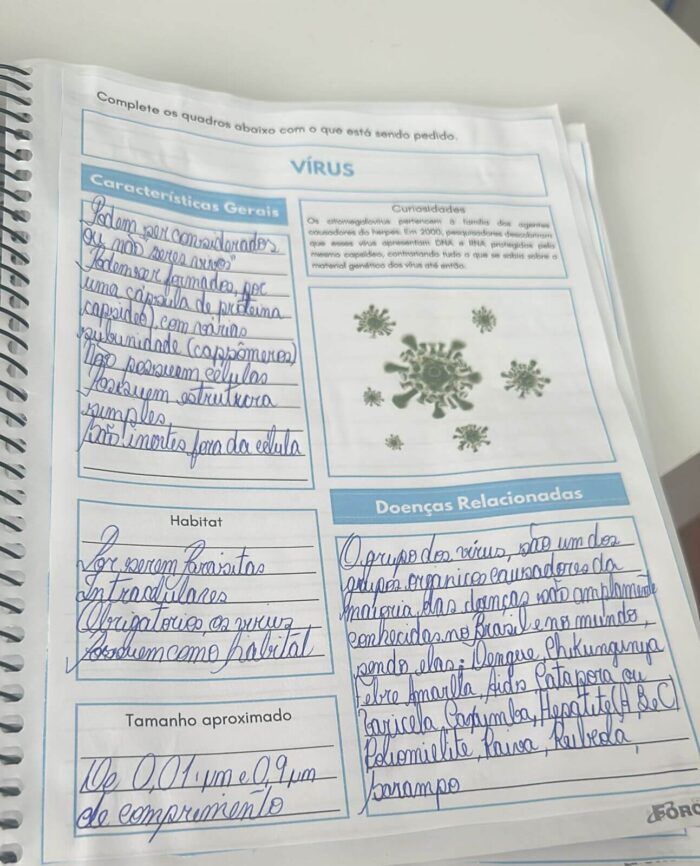 Complete os quadros abaixo com o que está sendo pedido.
VÍRUS
Características Gerais
Podem ser considerados
ou não seres vivos"
Podem ser formados, por
uma cápsula de proteína
(capsídeo), com várias
subunidade (cappômeros)
Não possuem células
Possuem estrutura
simples
São inertes fora da célula
Curiosidades
Os citomegalovírus pertencem à família dos agentes
causadores do herpes. Em 2000, pesquisadores descobriram
que esses vírus apresentam DNA e RNA protegidos pelo
mesmo capsídeo, contrariando tudo o que se sabia sobre o
material genético dos vírus até então.
Habitat
Por serem Parasitas
Intracelulares
Obrigatórios, os vírus
possuem como habitat
Tamanho aproximado
De 0,01 µm e 0,9 µm
de comprimento
Doenças Relacionadas
O grupo dos vírus, são um dos
grupos organicos causadores da
maioria das doenças são amplamente
conhecidas no Brasil e no mundo,
sendo elas: Dengue, Chikungunya
Febre Amarilla, Aids Catapora ou
Varicela Caxumba, Hepatite (A, B e C)
Poliomielite, Raiva, Rubéola,
sarampo
FORO